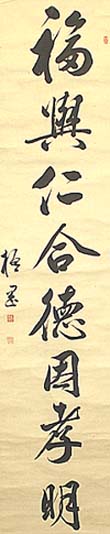 福與仁合德因孝明